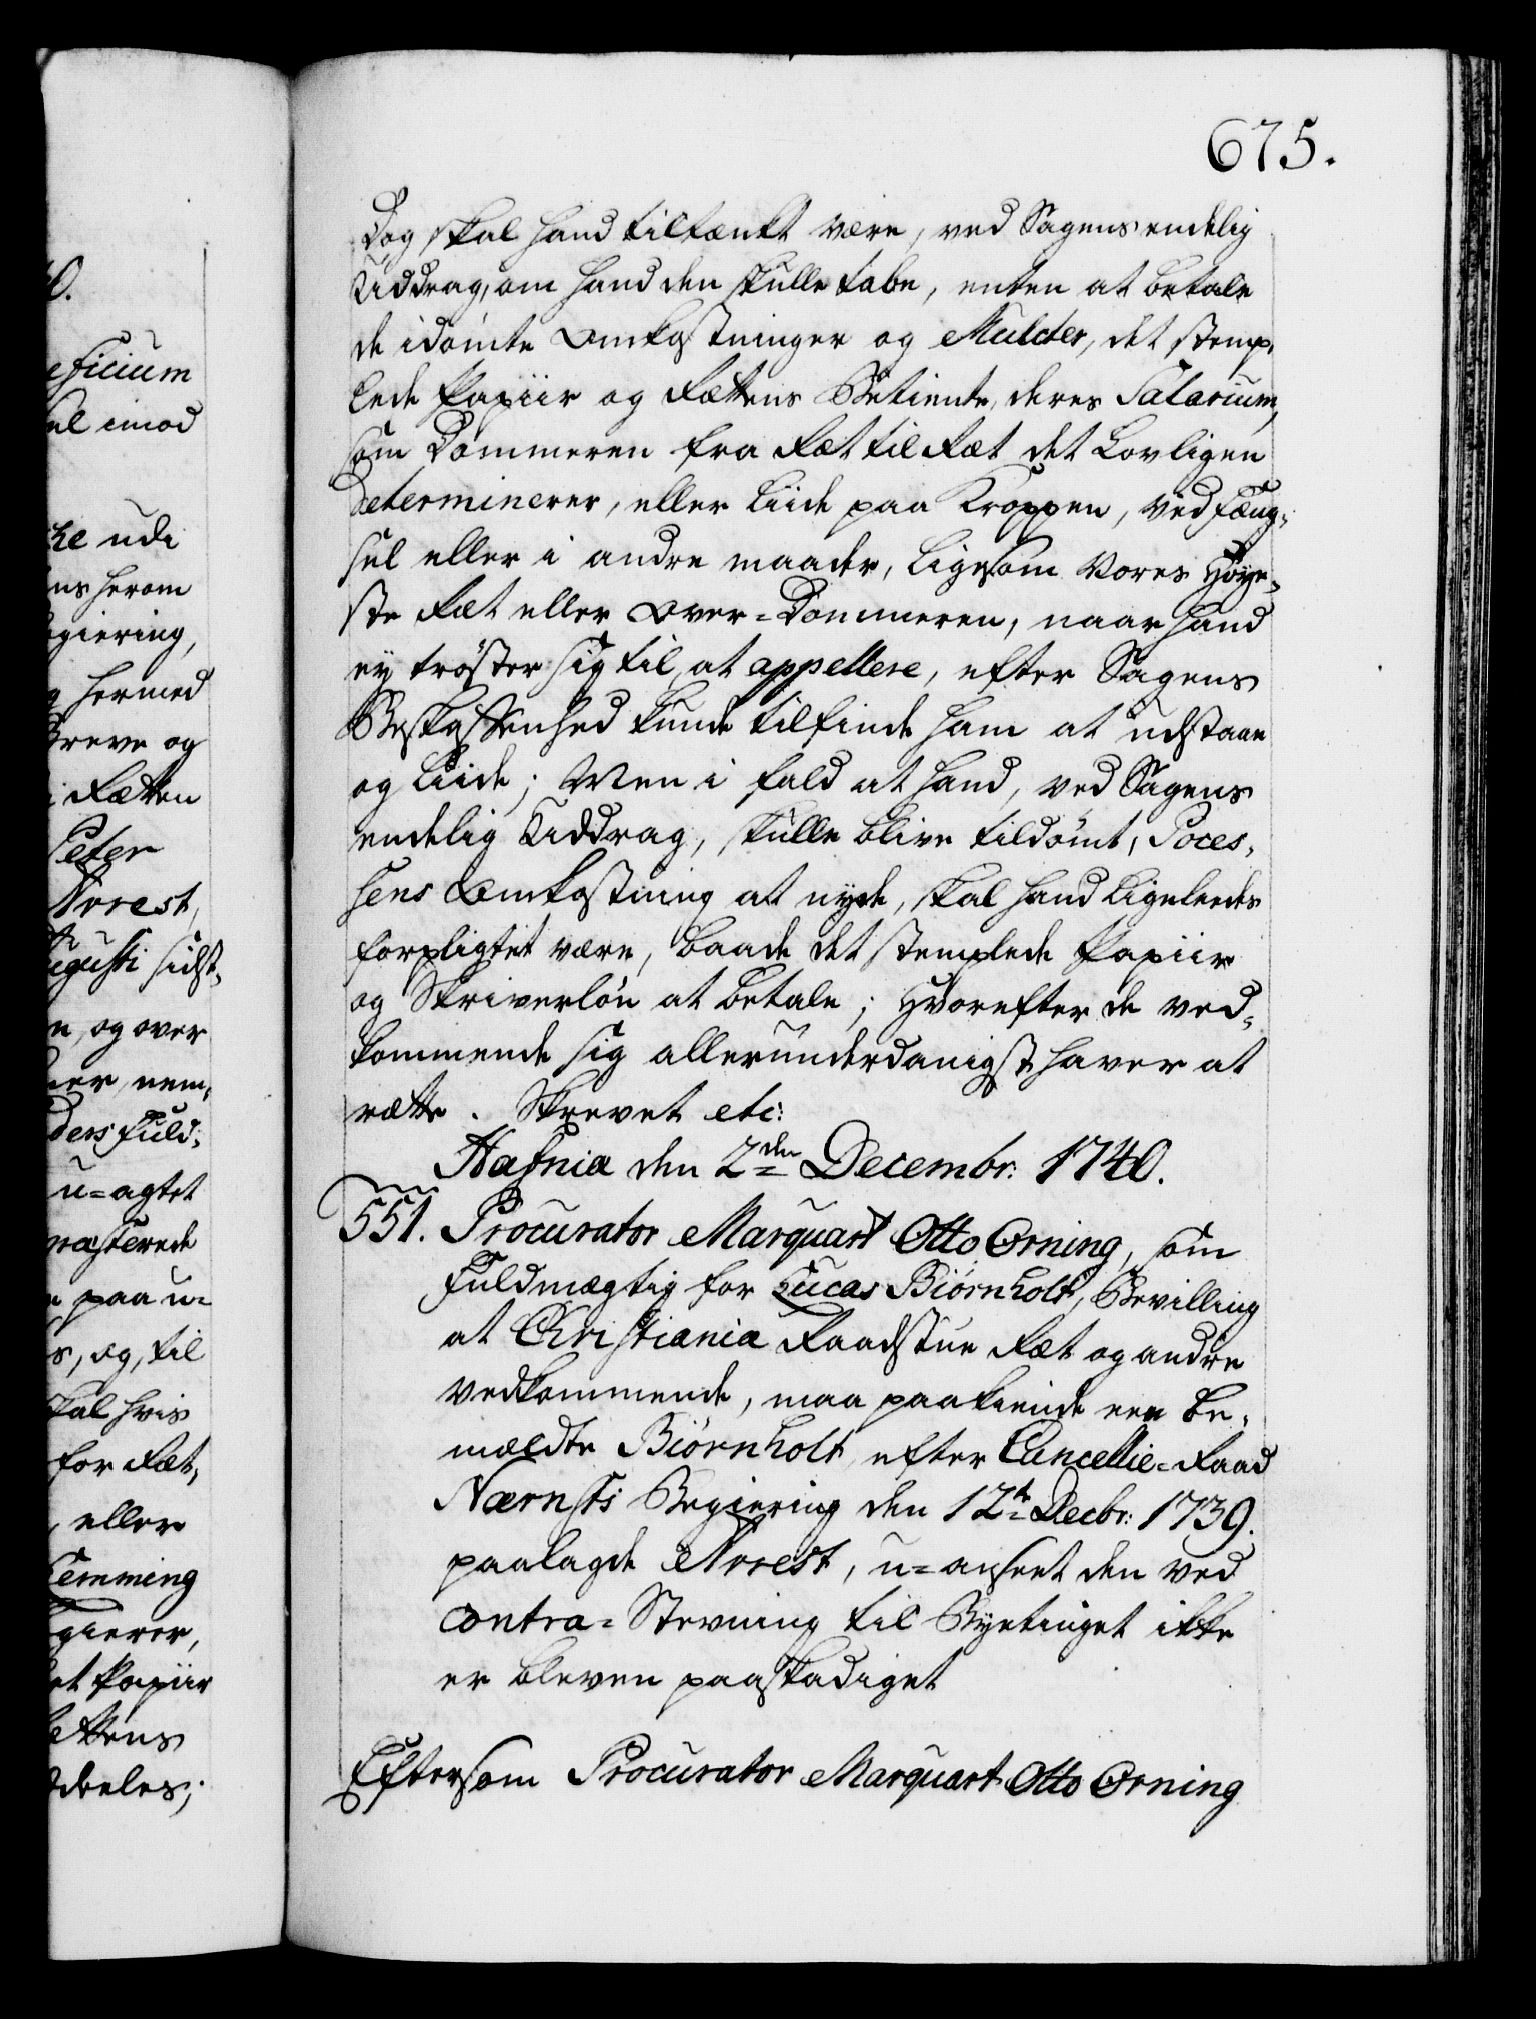 675.
Dog skal hand tiltænkt være, ved Sagens endelig
Uddrag, om hand den skulle tabe, enten at betale
de idømte Omkostninger og Mulcter, det stemp-
lede Papiir og Rættens Betiente, deres Salarium,
som Dommeren fra Ræt til Ræt det Lovligen
determinerer, eller liide paa Kroppen, ved Fæng-
sel eller i andre maader, ligesom Vores Høye-
ste Ræt eller Over-Dommeren, naar hand
ey trøster sig til at appellere, efter Sagens
Beskaffenhed kunde tilfinde ham at udstaae
og liide; Men i fald at hand, ved Sagens
endelig Uddrag, skulle blive tildømt, Poces-
sens Omkostning at nyde, skal hand ligeleedes
forpligtet være, baade det stemplede Papiir
og Skriverløn at betale; Hvorefter de ved-
kommende sig allerunderdanigst haver at
rætte. Skrevet etc:
Hafnia den 2den Decembr: 1740.
551. Procurator Marquart Otto Orning, som
Fuldmægtig for Lucas Biørnholt, Bevilling
at Christiania Raadstue Ræt og andre
vedkommende, maa paakiende een be-
mældte Biørnholt efter Cancellie-Raad
Nærnsts Begiering den 12te Decbr: 1739.
paalagde Arrest, u-anseet den ved
Contra-Stevning til Byetinget ikke
er bleven paaskadiget
Eftersom Procurator Marquart Otto Orning
0.
eficium
el imod
he udi
ns herom
egiering,
g hermed
Breve og
i Rætten
Peter
Arrest,
ugusti sidst-
n, og over
ner, nem-
ders Fuld-
u-agtet
rasterede
n paa u-
s, og, til
kal hvis
for Ræt,
, eller
Lemming
gierer,
et Papiir
ettens
deeles;